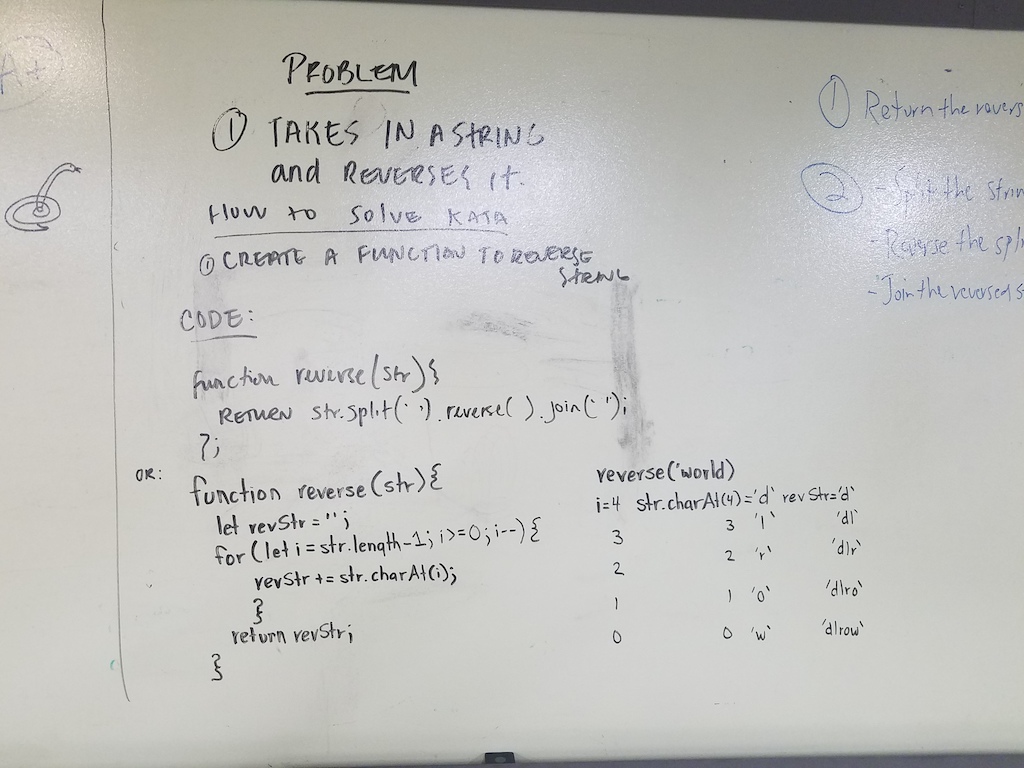 A+
PROBLEM
① TAKES IN A STRING
and REVERSES it.
HOW to SOLVE KATA
① CREATE A FUNCTION TO REVERSE
STRING
CODE:
function reverse(str){
RETURN str.split(' ').reverse( ).join(' ');
};
OR:
function reverse(str){
let revStr = '';
for (let i = str.length-1; i>=0; i--) {
revStr += str.charAt(i);
}
return revStr;
}
reverse('world)
i=4 str.charAt(4)='d' revStr='d'
3 3 'l' 'dl'
2 2 'r' 'dlr'
1 1 'o' 'dlro'
0 0 'w' 'dlrow'
① Return the
② - Split the
- Reverse the
- Join the reversed